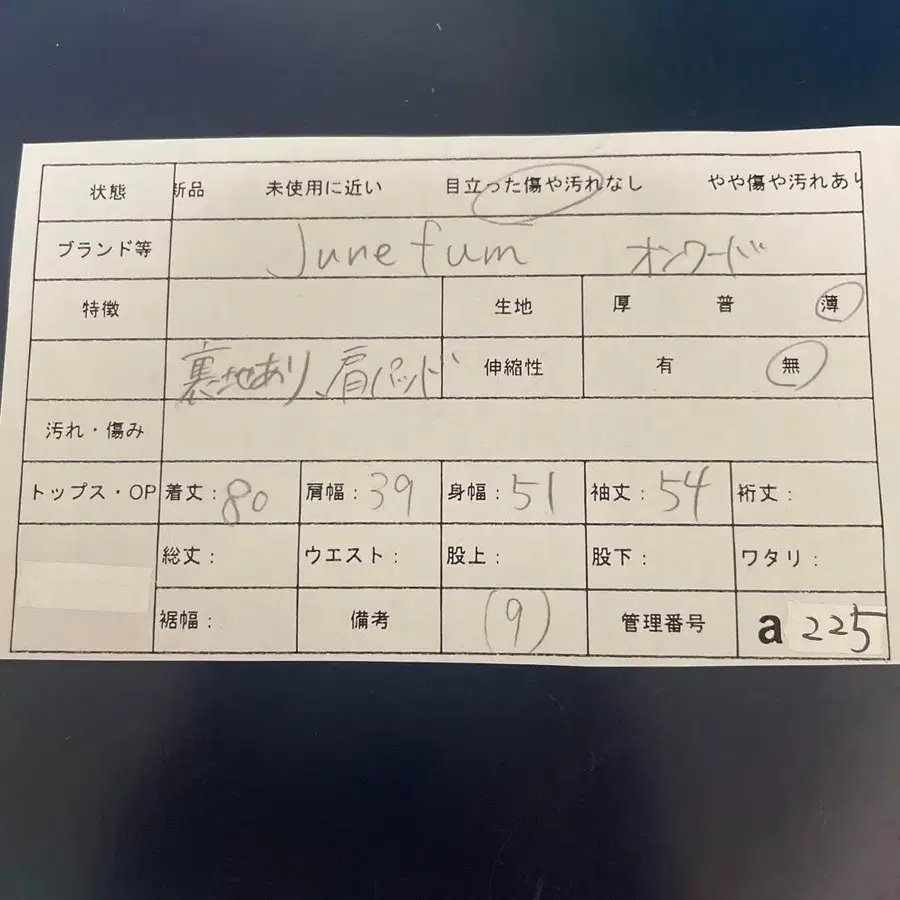 状態 新品 未使用に近い 目立った傷や汚れなし やや傷や汚れあり
ブランド等 Junefum オンワード
特徴 生地 厚 普 薄
裏地あり、肩パッド 伸縮性 有 無
汚れ・傷み
トップス・OP 着丈:80 肩幅:39 身幅:51 袖丈:54 裄丈:
総丈: ウエスト: 股上: 股下: ワタリ:
裾幅: 備考 (9) 管理番号 a 225